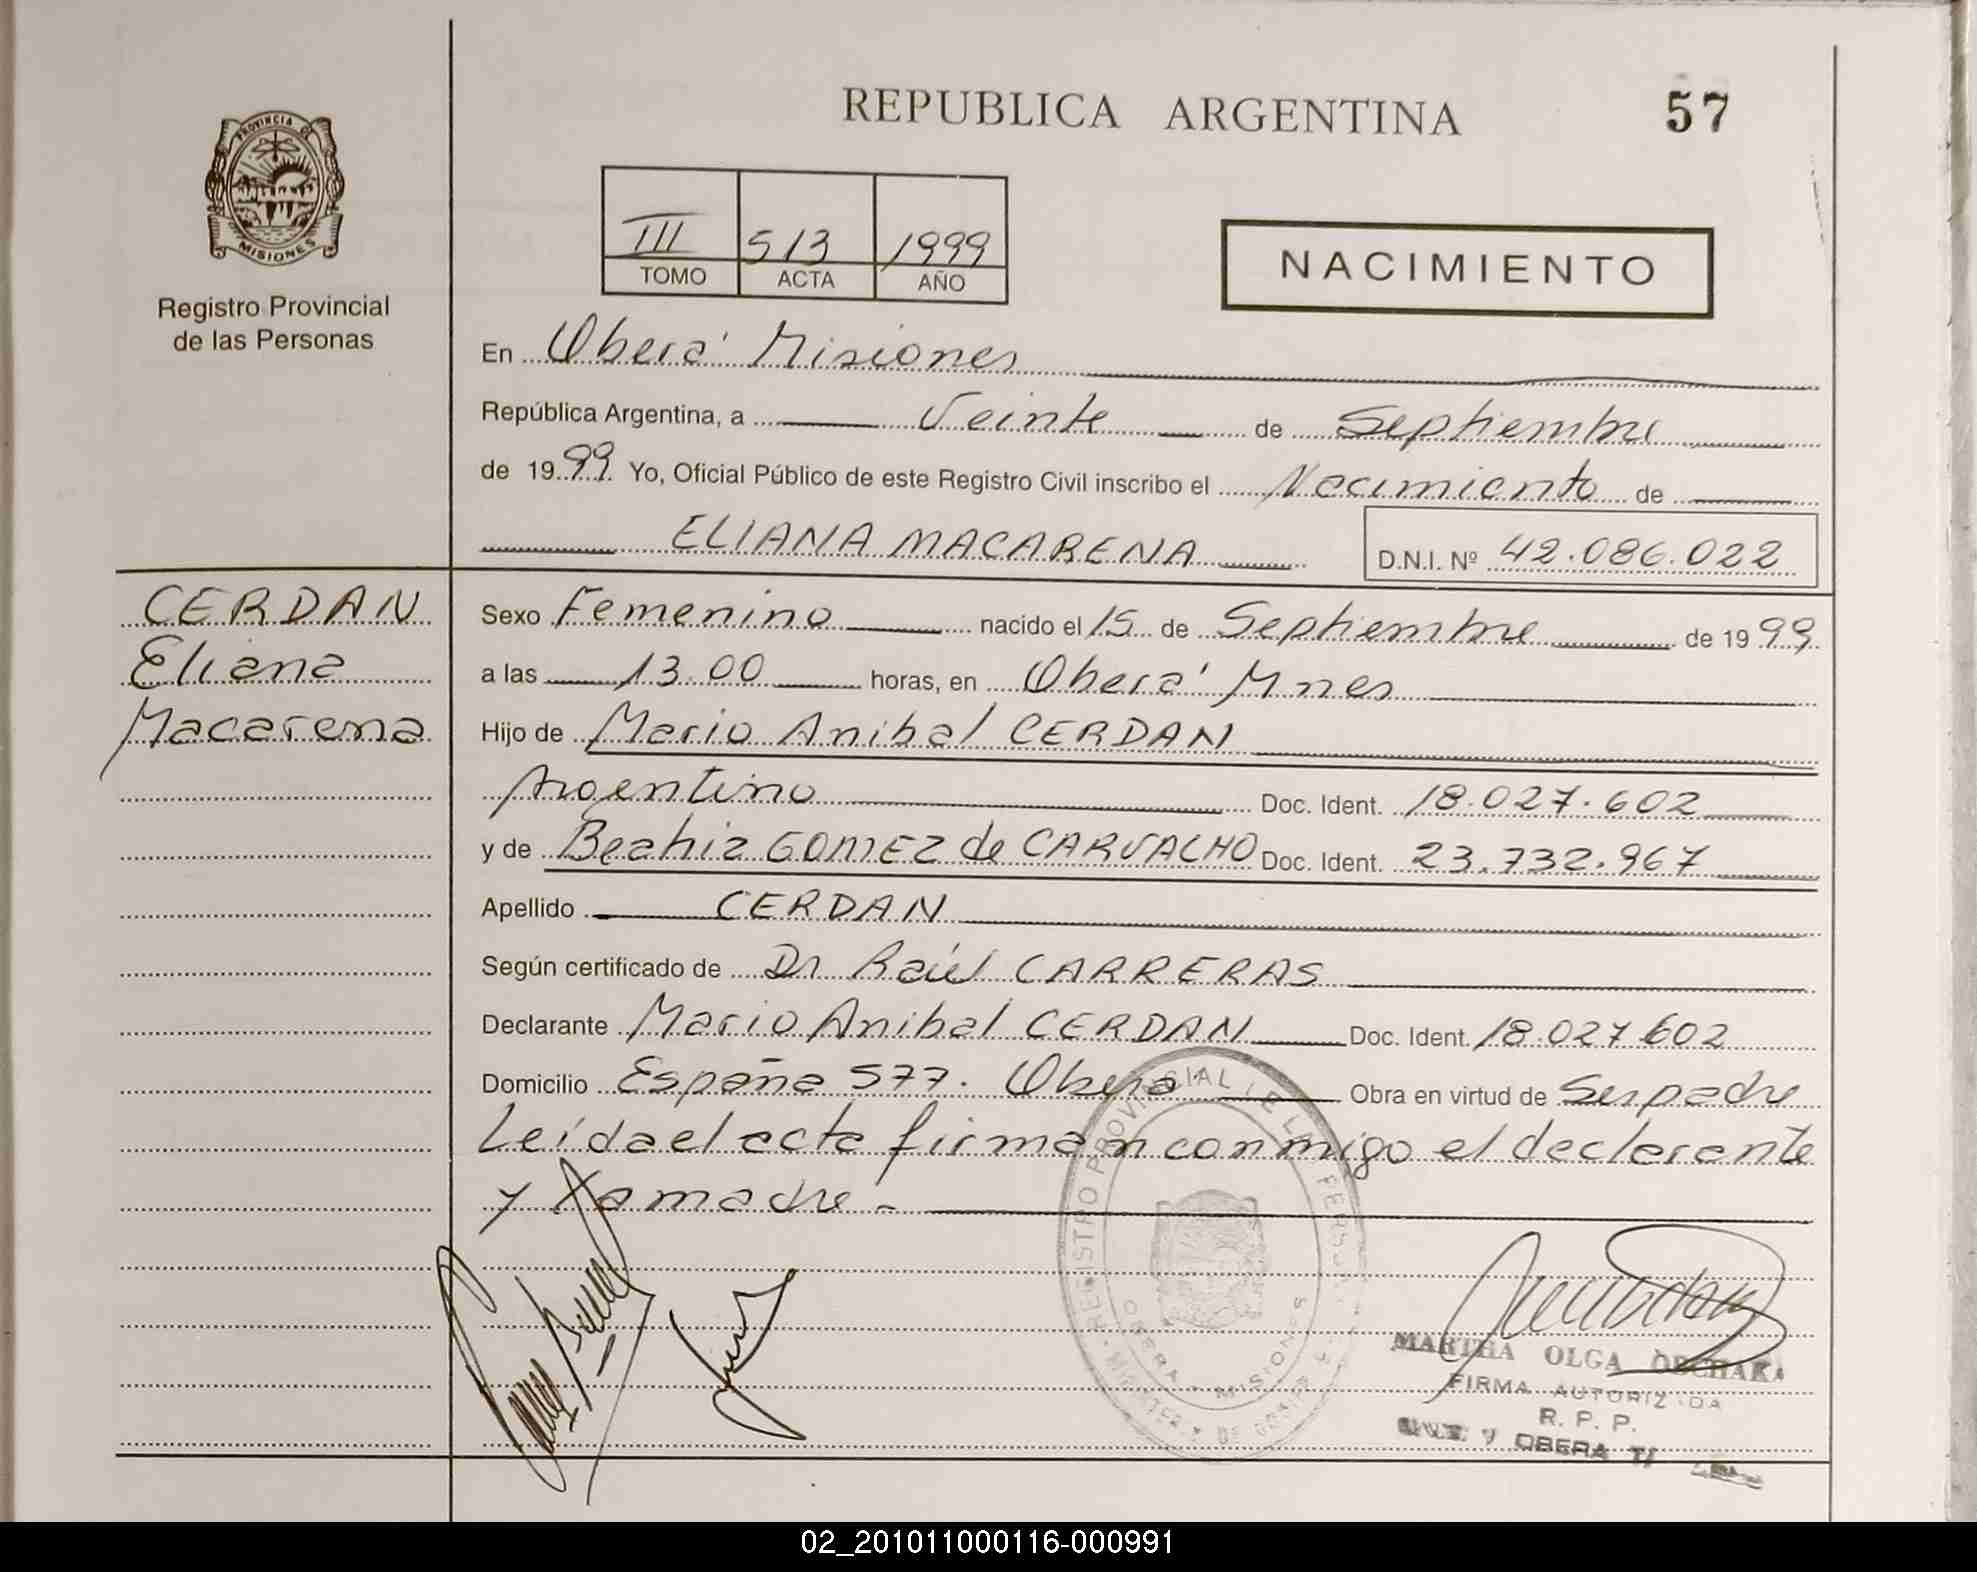 REPUBLICA ARGENTINA
57
PROVINCIA D
MISIONES
Registro Provincial
de las Personas
III 513 1999
TOMO ACTA AÑO
NACIMIENTO
En Oberá Misiones
República Argentina, a Veinte de Septiembre
de 1999. Yo, Oficial Público de este Registro Civil inscribo el Nacimiento de
ELIANA MACARENA D.N.I. Nº 42.086.022
CERDAN
Eliana
Macarena
Sexo Femenino nacido el 15 de Septiembre de 1999
a las 13.00 horas, en Oberá Mnes
Hijo de Mario Anibal CERDAN
Argentino Doc. Ident. 18.027.602
y de Beatriz GOMEZ de CARVALHO Doc. Ident. 23.732.967
Apellido CERDAN
Según certificado de Dr Raúl CARRERAS
Declarante Mario Anibal CERDAN Doc. Ident. 18.027.602
Domicilio España 577. Oberá Obra en virtud de Ser padre
Leída el acta firman conmigo el declarante
y la madre -
REGISTRO PROVINCIAL DE LAS PERSONAS
OBERA - MISIONES
MARTHA OLGA
FIRMA AUTORIZADA
R. P. P.
OBERA
02_201011000116-000991